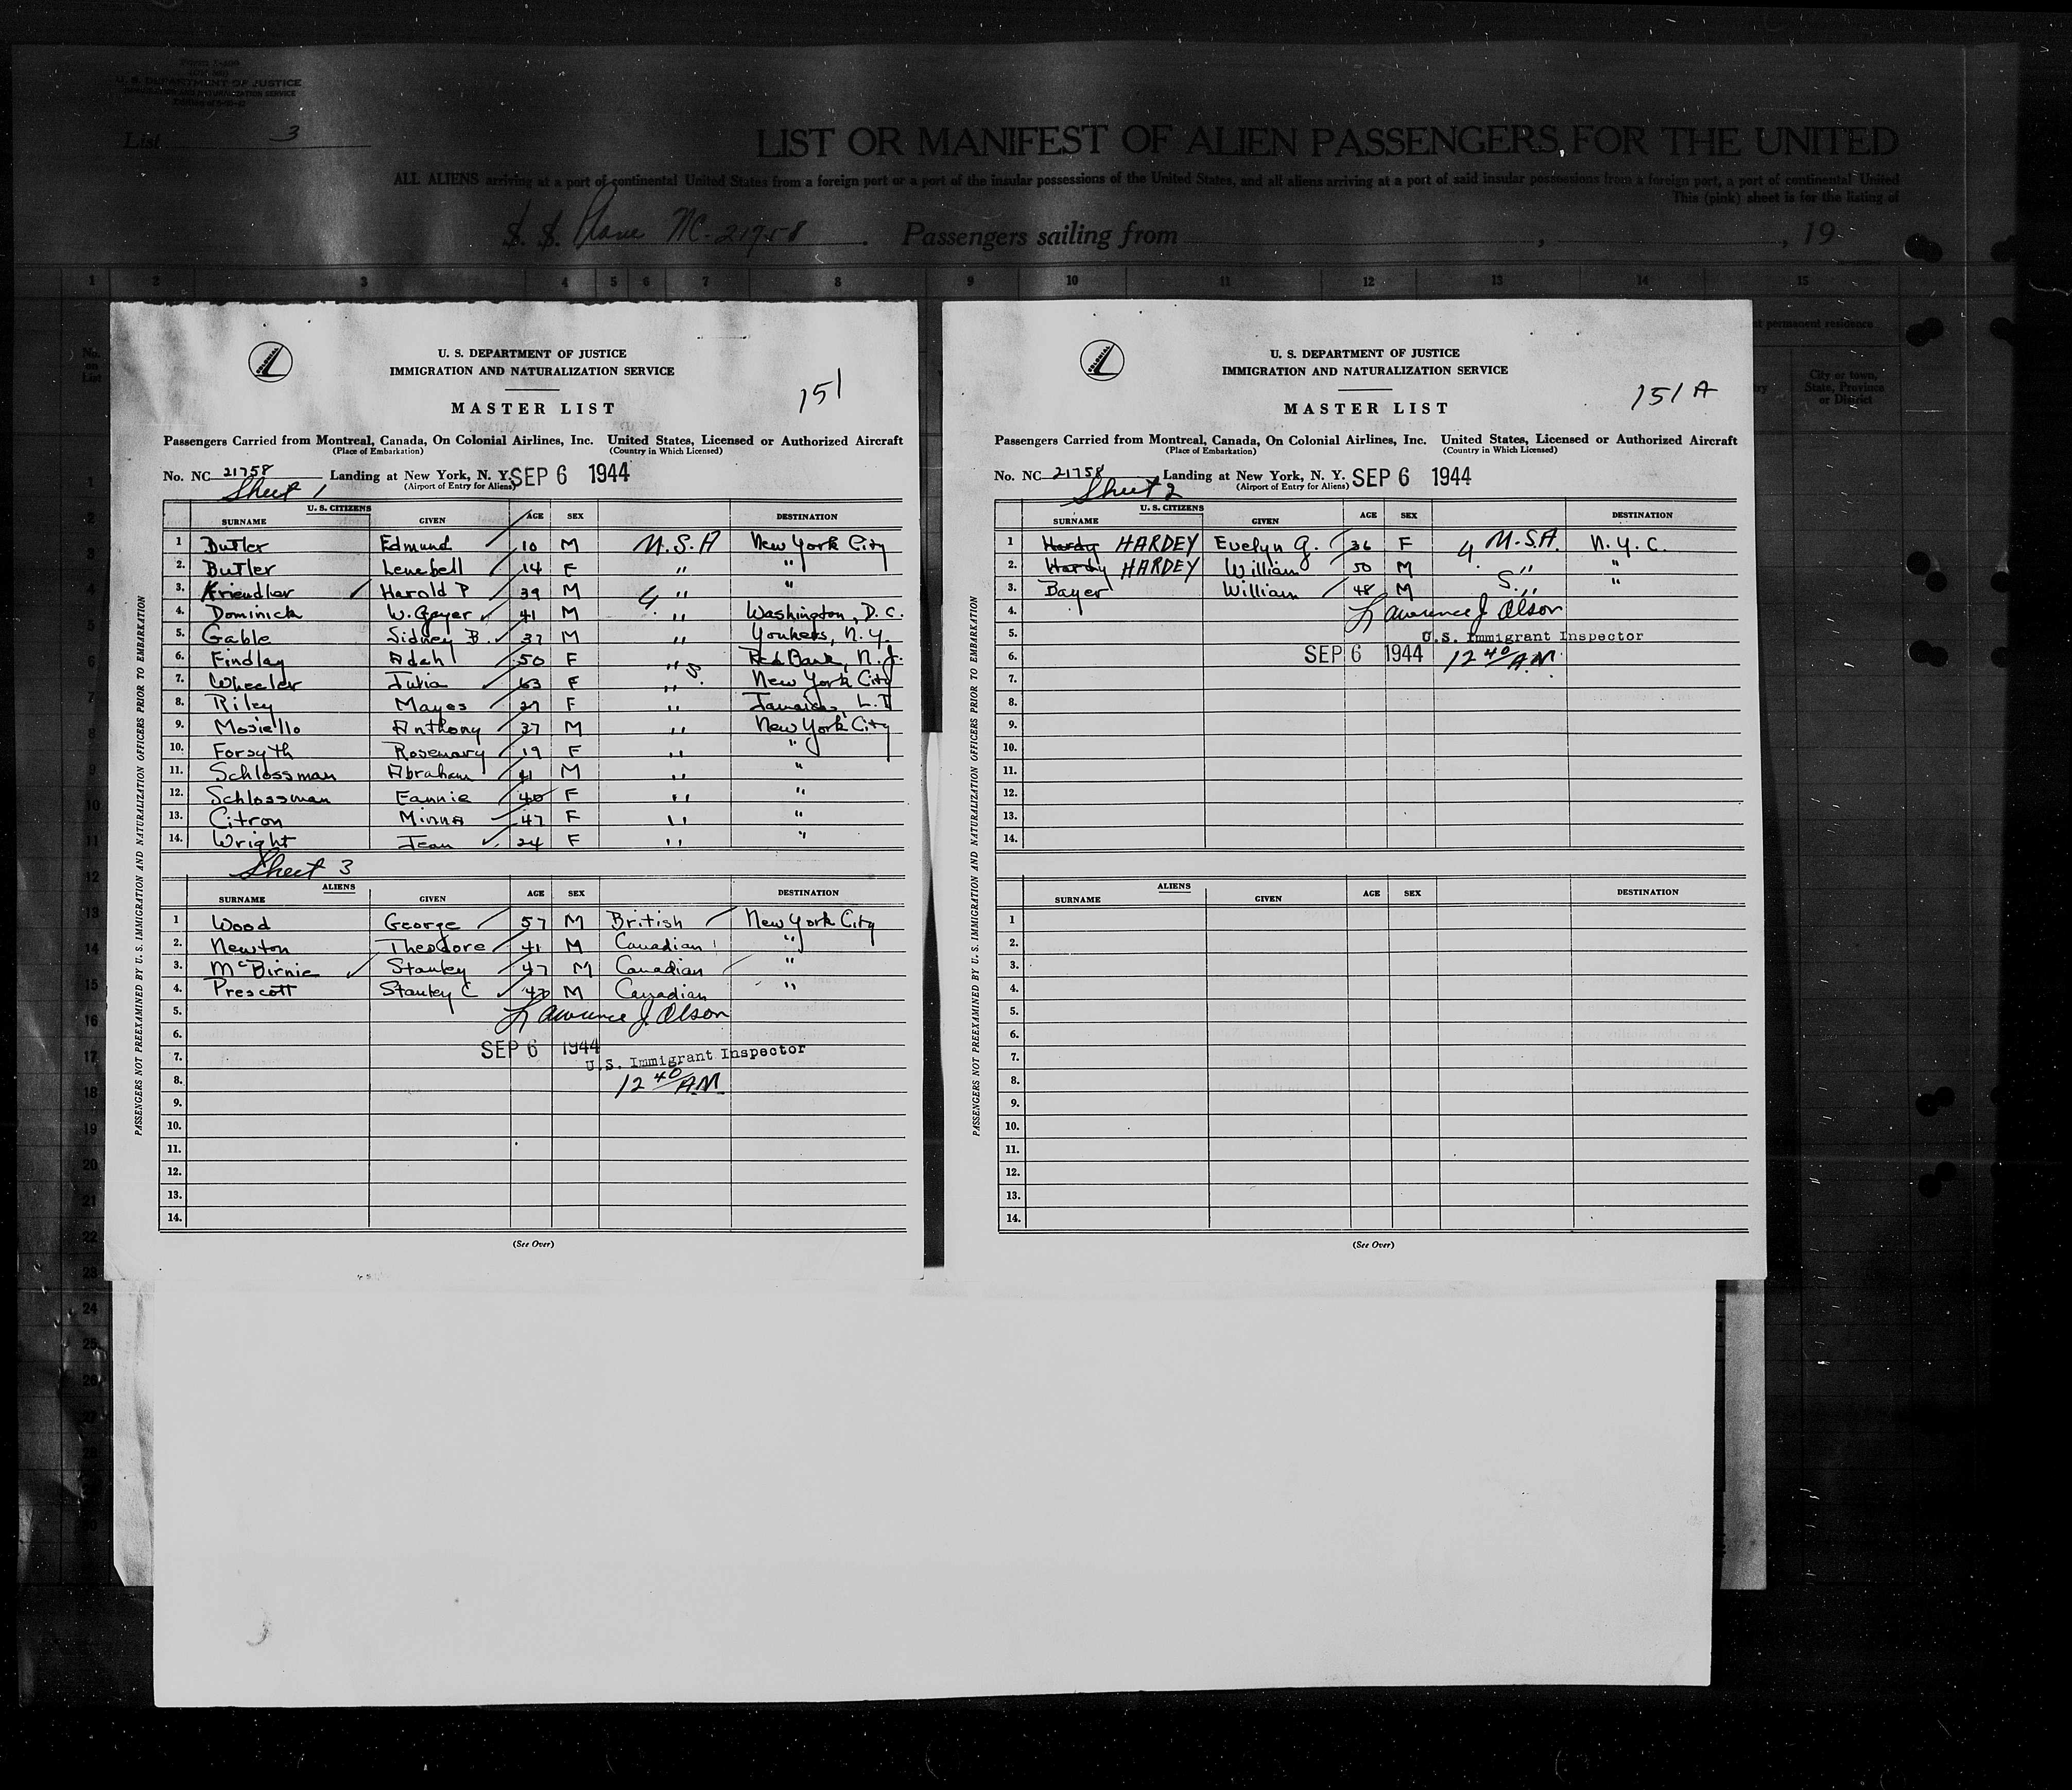 U. S. DEPARTMENT OF JUSTICE
List 3
LIST OR MANIFEST OF ALIEN PASSENGERS FOR THE UNITED
ALL ALIENS arriving at a port of continental United States from a foreign port or a port of the insular possessions of the United States, and all aliens arriving at a port of said insular possessions from a foreign port, a port of continental United
This (pink) sheet is for the listing of
S. S. Plane NC-21758. Passengers sailing from , , 19
1 2 3 4 5 6 7 8 9 10 11 12 13 14 15
t permanent residence
No. on List
City or town, State, Province or District
COLONIAL
U. S. DEPARTMENT OF JUSTICE
IMMIGRATION AND NATURALIZATION SERVICE
151
MASTER LIST
Passengers Carried from Montreal, Canada, On Colonial Airlines, Inc. United States, Licensed or Authorized Aircraft
(Place of Embarkation) (Country in Which Licensed)
No. NC 21758 Landing at New York, N. Y. SEP 6 1944
Sheet 1 (Airport of Entry for Aliens)
U. S. CITIZENS
SURNAME GIVEN AGE SEX DESTINATION
1 Butler Edmund 10 M U.S.A New York City
2. Butler Lenebell 14 F " "
3. Kriendler Harold P 39 M 4 " "
4. Dominick W. Gayer 41 M " Washington, D.C.
5. Gable Sidney B. 37 M " Yonkers, N.Y.
6. Findlay Adah 50 F " Red Bank, N.J.
7. Wheeler Julia 63 F " S. New York City
8. Riley Mayes 27 F " Jamaica, L.I
9. Mosiello Anthony 37 M " New York City
10. Forsyth Rosemary 19 F " "
11. Schlossman Abraham 41 M " "
12. Schlossman Fannie 40 F " "
13. Citron Minna 47 F " "
14. Wright Jean 24 F " "
Sheet 3
ALIENS
SURNAME GIVEN AGE SEX DESTINATION
1 Wood George 57 M British New York City
2. Newton Theodore 41 M Canadian "
3. McBirnie Stanley 47 M Canadian "
4. Prescott Stanley C 47 M Canadian "
5. Lawrence J. Olson
6.
7. SEP 6 1944 U.S. Immigrant Inspector
8. 12 40 AM
9.
10.
11.
12.
13.
14.
(See Over)
PASSENGERS NOT PREEXAMINED BY U. S. IMMIGRATION AND NATURALIZATION OFFICERS PRIOR TO EMBARKATION
COLONIAL
U. S. DEPARTMENT OF JUSTICE
IMMIGRATION AND NATURALIZATION SERVICE
151 A
MASTER LIST
Passengers Carried from Montreal, Canada, On Colonial Airlines, Inc. United States, Licensed or Authorized Aircraft
(Place of Embarkation) (Country in Which Licensed)
No. NC 21758 Landing at New York, N. Y. SEP 6 1944
Sheet 2 (Airport of Entry for Aliens)
U. S. CITIZENS
SURNAME GIVEN AGE SEX DESTINATION
1 Hardy HARDEY Evelyn G. 36 F 4 U.S.A. N.Y.C.
2. Hardy HARDEY William 50 M " "
3. Bayer William 48 M S. " "
4. Lawrence J. Olson
5. U.S. Immigrant Inspector
6. SEP 6 1944 12 40 A.M.
7.
8.
9.
10.
11.
12.
13.
14.
ALIENS
SURNAME GIVEN AGE SEX DESTINATION
1
2.
3.
4.
5.
6.
7.
8.
9.
10.
11.
12.
13.
14.
(See Over)
PASSENGERS NOT PREEXAMINED BY U. S. IMMIGRATION AND NATURALIZATION OFFICERS PRIOR TO EMBARKATION